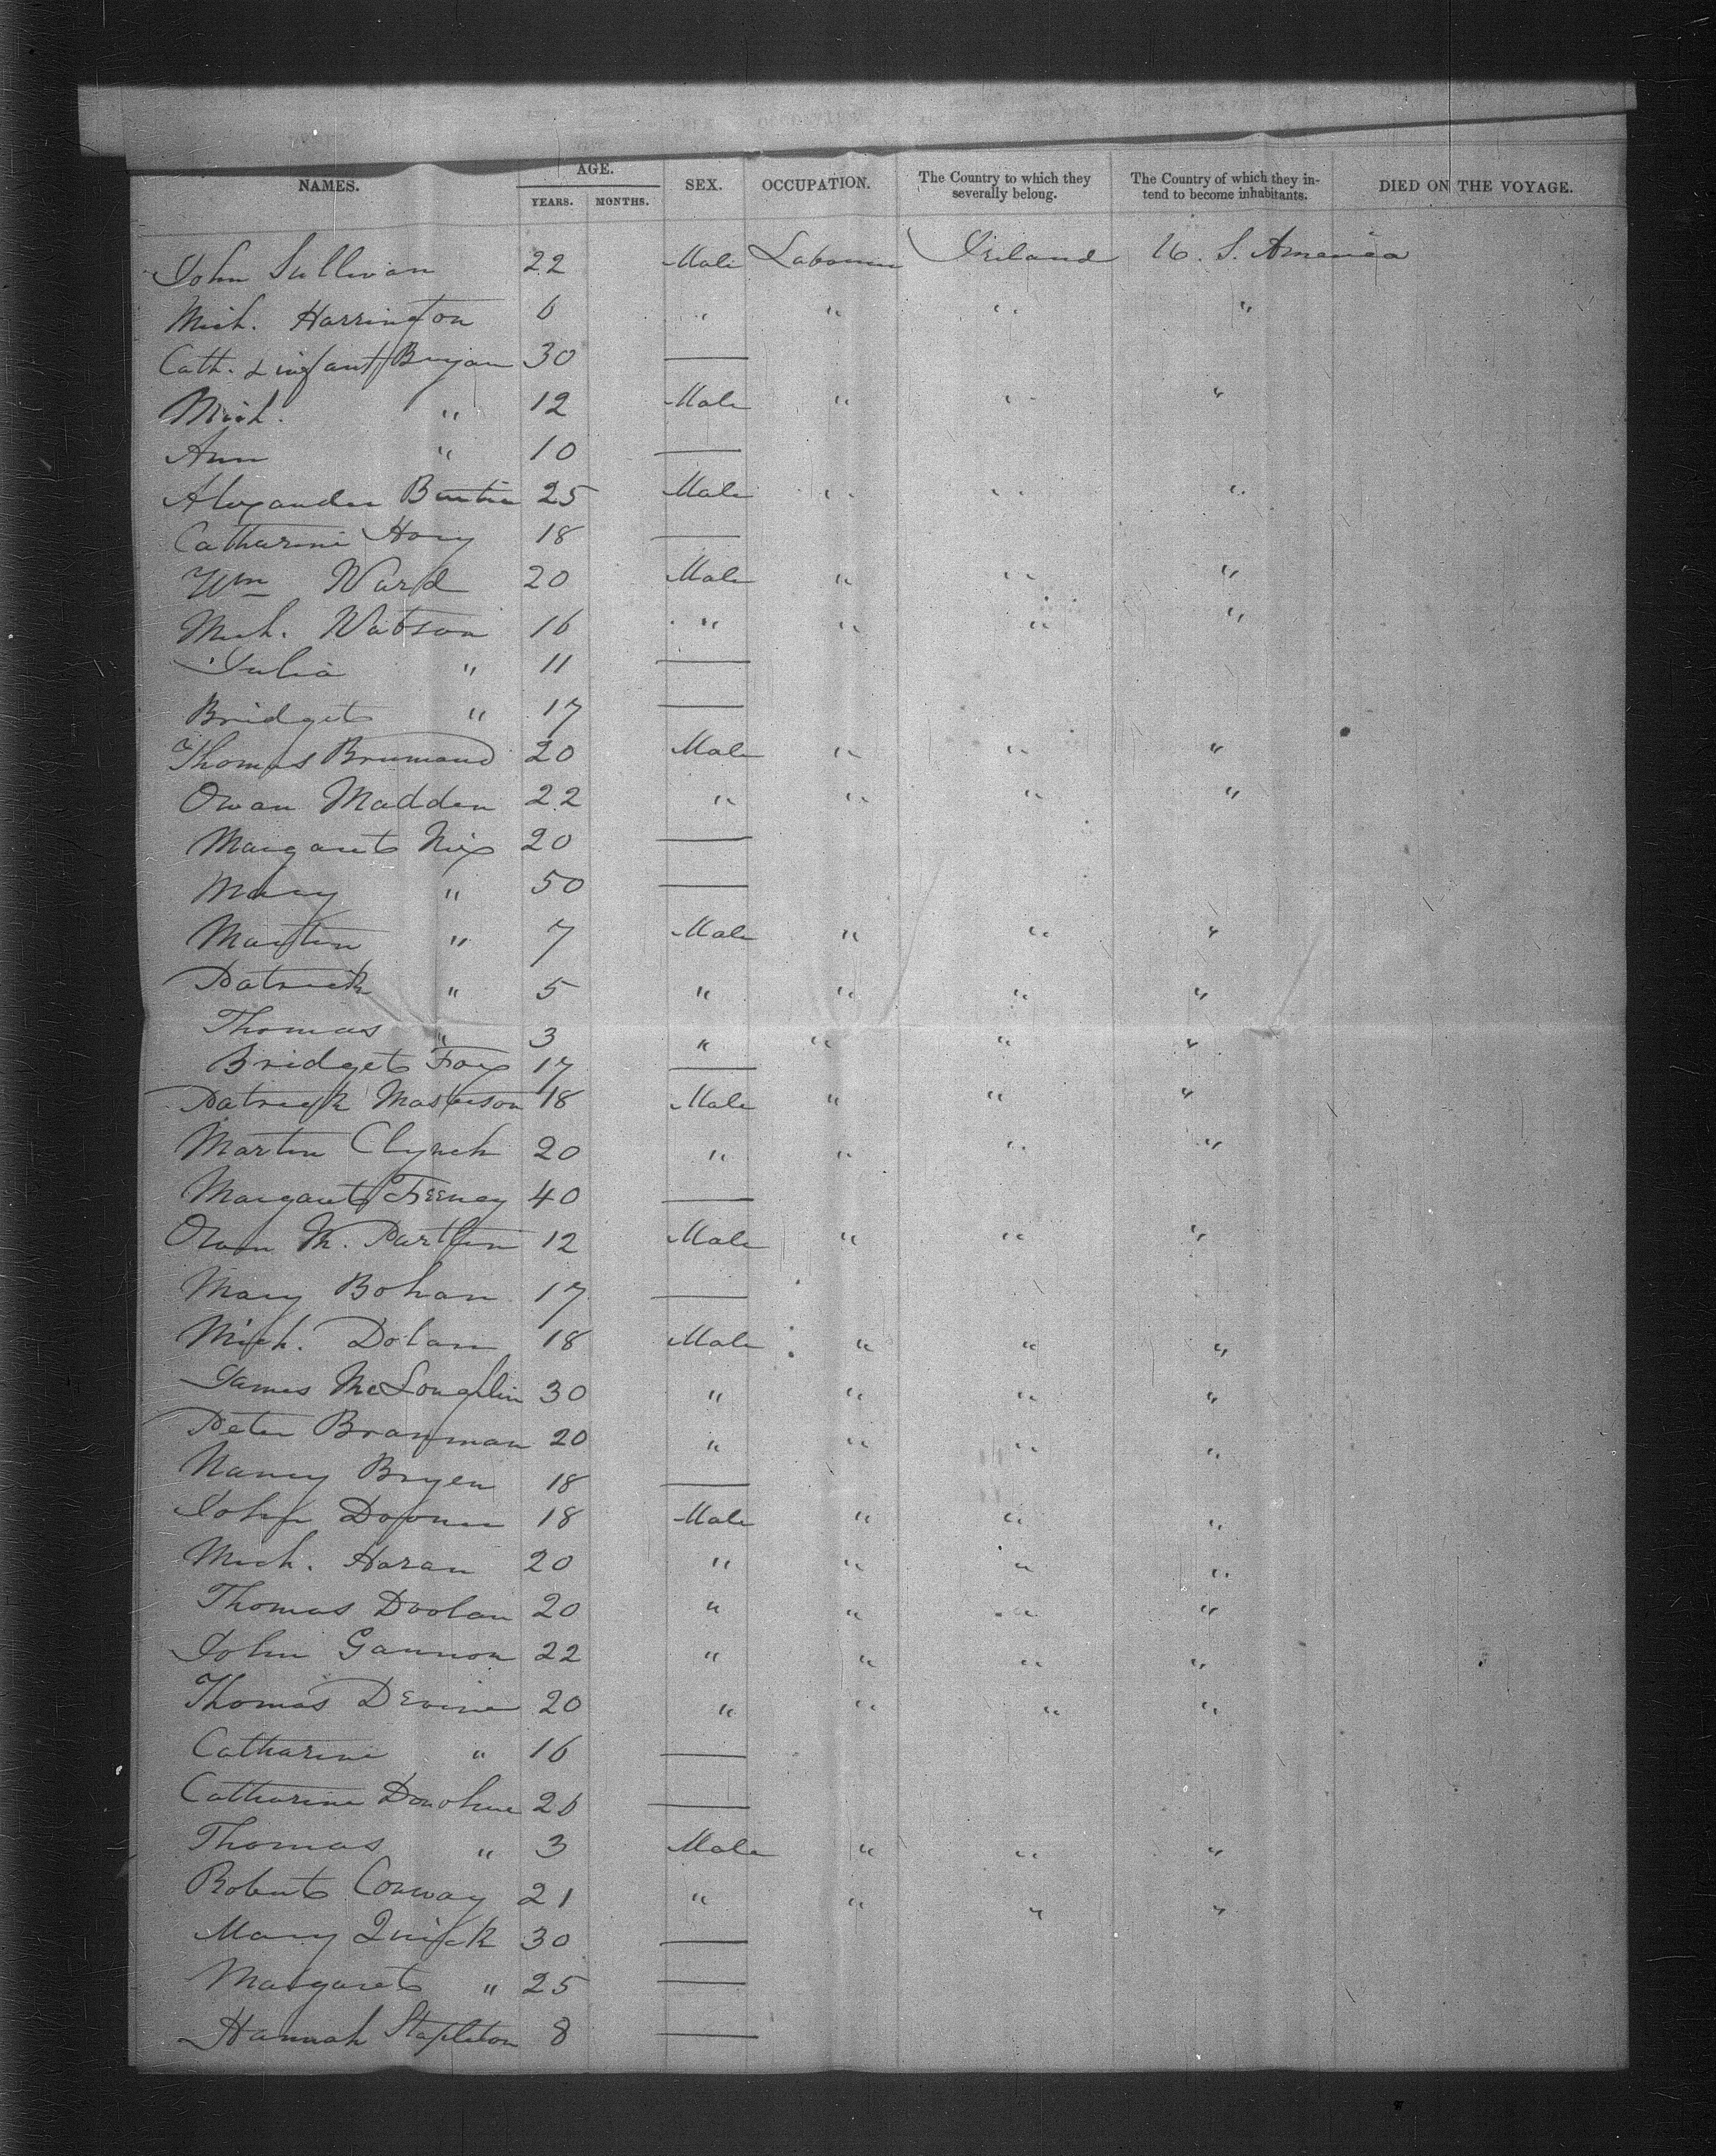 NAMES. AGE. YEARS. MONTHS. SEX. OCCUPATION. The Country to which they severally belong. The Country of which they intend to become inhabitants. DIED ON THE VOYAGE.
John Sullivan 22 Male Labourer Ireland U. S. America
Mich. Harrington 6 " " " "
Cath. & infant Bryan 30 —
Mich. " 12 Male " " "
Ann " 10 —
Alexander 25 Male " " "
Catharine Hoey 18 —
Wm Ward 20 Male " " "
Mich. Watson 16 " " " "
Julia " 11 —
Bridget " 17 —
Thomas 20 Male " " "
Owen Madden 22 " " " "
Margaret Nix 20 —
Mary " 50 —
Martin " 7 Male " " "
Patrick " 5 " " " "
Thomas " 3 " " " "
Bridget Foy 17 —
Patrick Masterson 18 Male " " "
Martin Clynch 20 " " " "
Margaret Feeney 40 —
Owen Mc. Partlin 12 Male " " "
Mary Bohan 17 —
Mich. Dolan 18 Male " " "
James McLoughlin 30 " " " "
Peter Brannnan 20 " " " "
Nancy Bryen 18 —
John 18 Male " " "
Mich. Haran 20 " " " "
Thomas Doolan 20 " " " "
John Gannon 22 " " " "
Thomas Devine 20 " " " "
Catharine " 16 —
Catharine Donohue 26 —
Thomas " 3 Male " " "
Robert Conway 21 " " " "
Mary Quick 30 —
Margaret " 25 —
Hannah Stapleton 8 —